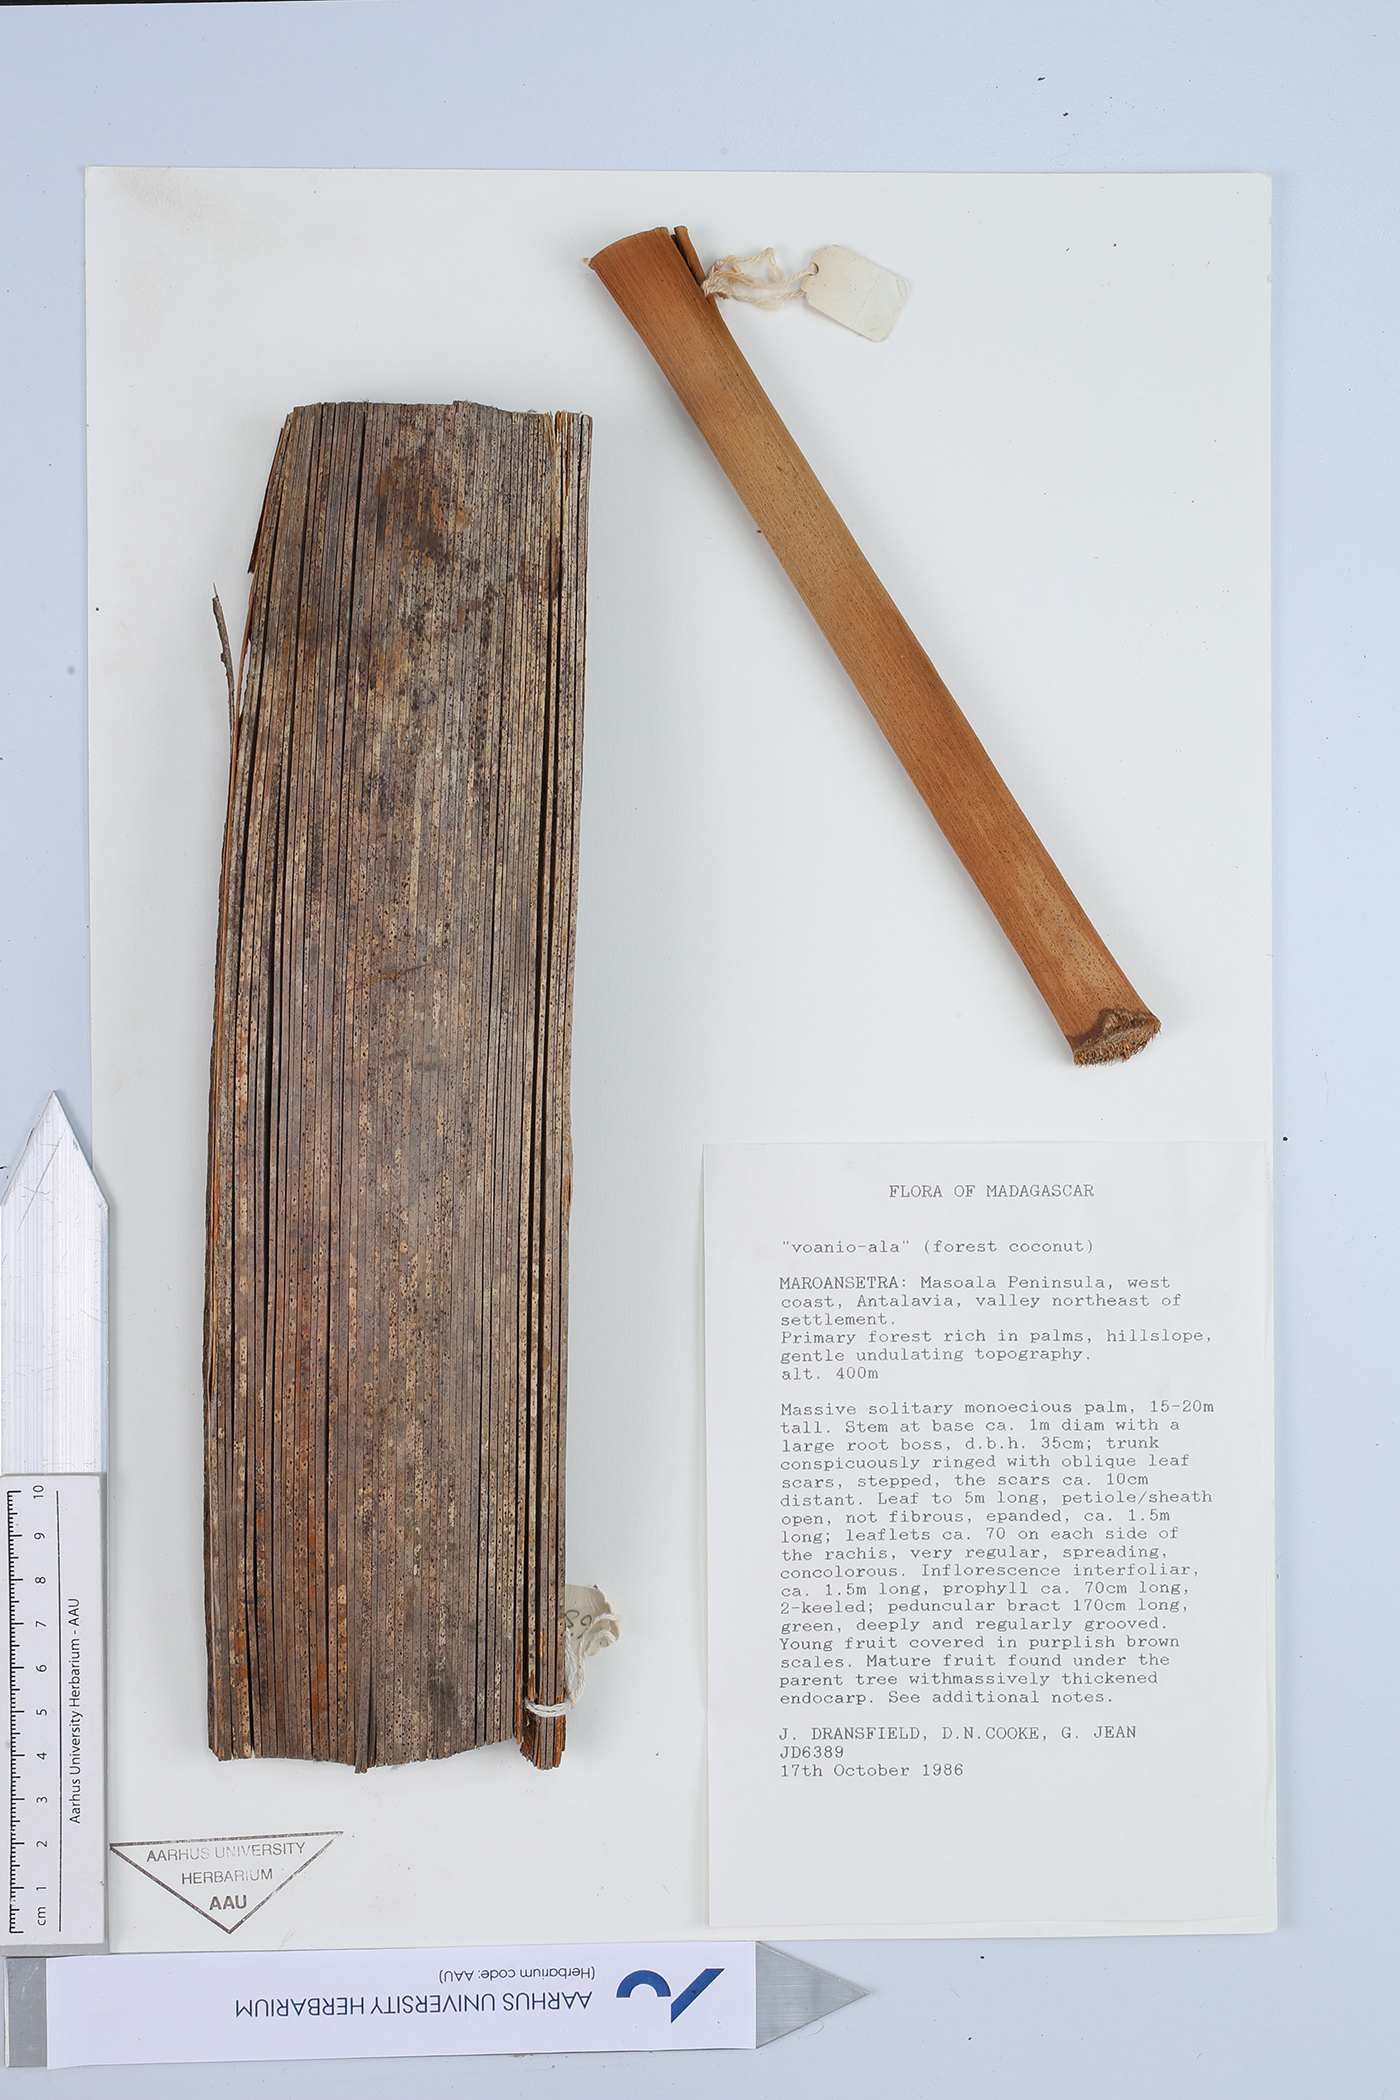 FLORA OF MADAGASCAR
"voanio-ala" (forest coconut)
MAROANSETRA: Masoala Peninsula, west
coast, Antalavia, valley northeast of
settlement.
Primary forest rich in palms, hillslope,
gentle undulating topography.
alt. 400m
Massive solitary monoecious palm, 15-20m
tall. Stem at base ca. 1m diam with a
large root boss, d.b.h. 35cm; trunk
conspicuously ringed with oblique leaf
scars, stepped, the scars ca. 10cm
distant. Leaf to 5m long, petiole/sheath
open, not fibrous, epanded, ca. 1.5m
long; leaflets ca. 70 on each side of
the rachis, very regular, spreading,
concolorous. Inflorescence interfoliar,
ca. 1.5m long, prophyll ca. 70cm long,
2-keeled; peduncular bract 170cm long,
green, deeply and regularly grooved.
Young fruit covered in purplish brown
scales. Mature fruit found under the
parent tree withmassively thickened
endocarp. See additional notes.
J. DRANSFIELD, D.N.COOKE, G. JEAN
JD6389
17th October 1986
AARHUS UNIVERSITY
HERBARIUM
AAU
cm 1 2 3 4 5 6 7 8 9 10
Aarhus University Herbarium - AAU
AARHUS UNIVERSITY HERBARIUM
(Herbarium code: AAU)